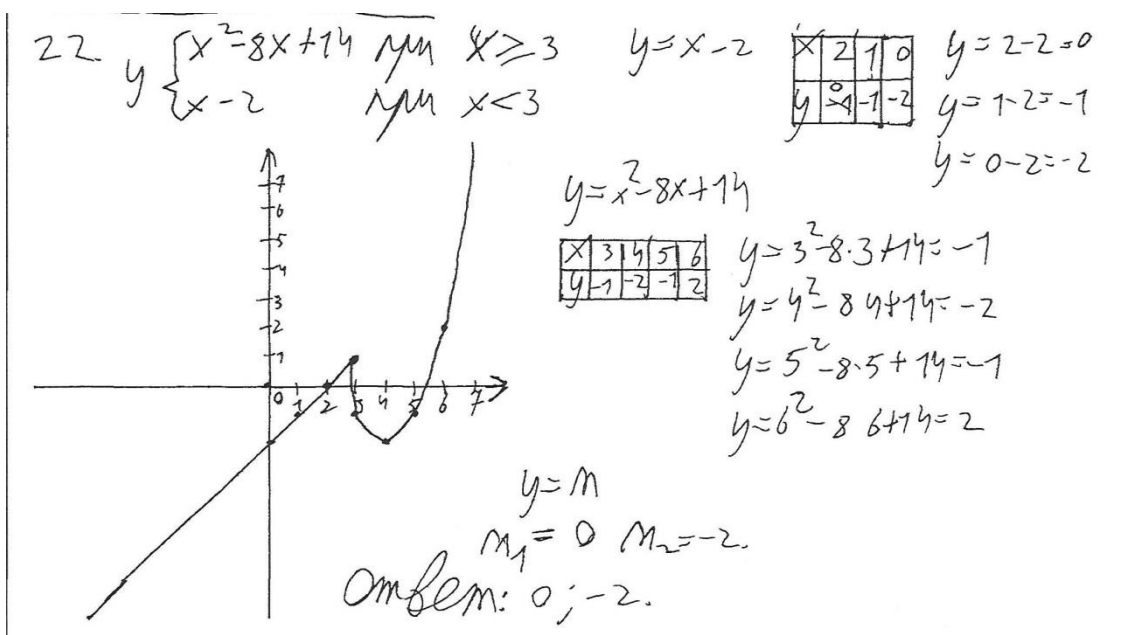 22. y { x²-8x+14 при x≥3
x-2 при x<3
y=x-2
x 2 1 0
y 0 -1 -2
y=2-2=0
y=1-2=-1
y=0-2=-2
y=x²-8x+14
x 3 4 5 6
y -1 -2 -1 2
y=3²-8·3+14=-1
y=4²-8 4+14=-2
y=5²-8·5+14=-1
y=6²-8 6+14=2
7
6
5
4
3
2
1
0 1 2 3 4 5 6 7
y=m
m₁=0 m₂=-2.
Ответ: 0;-2.